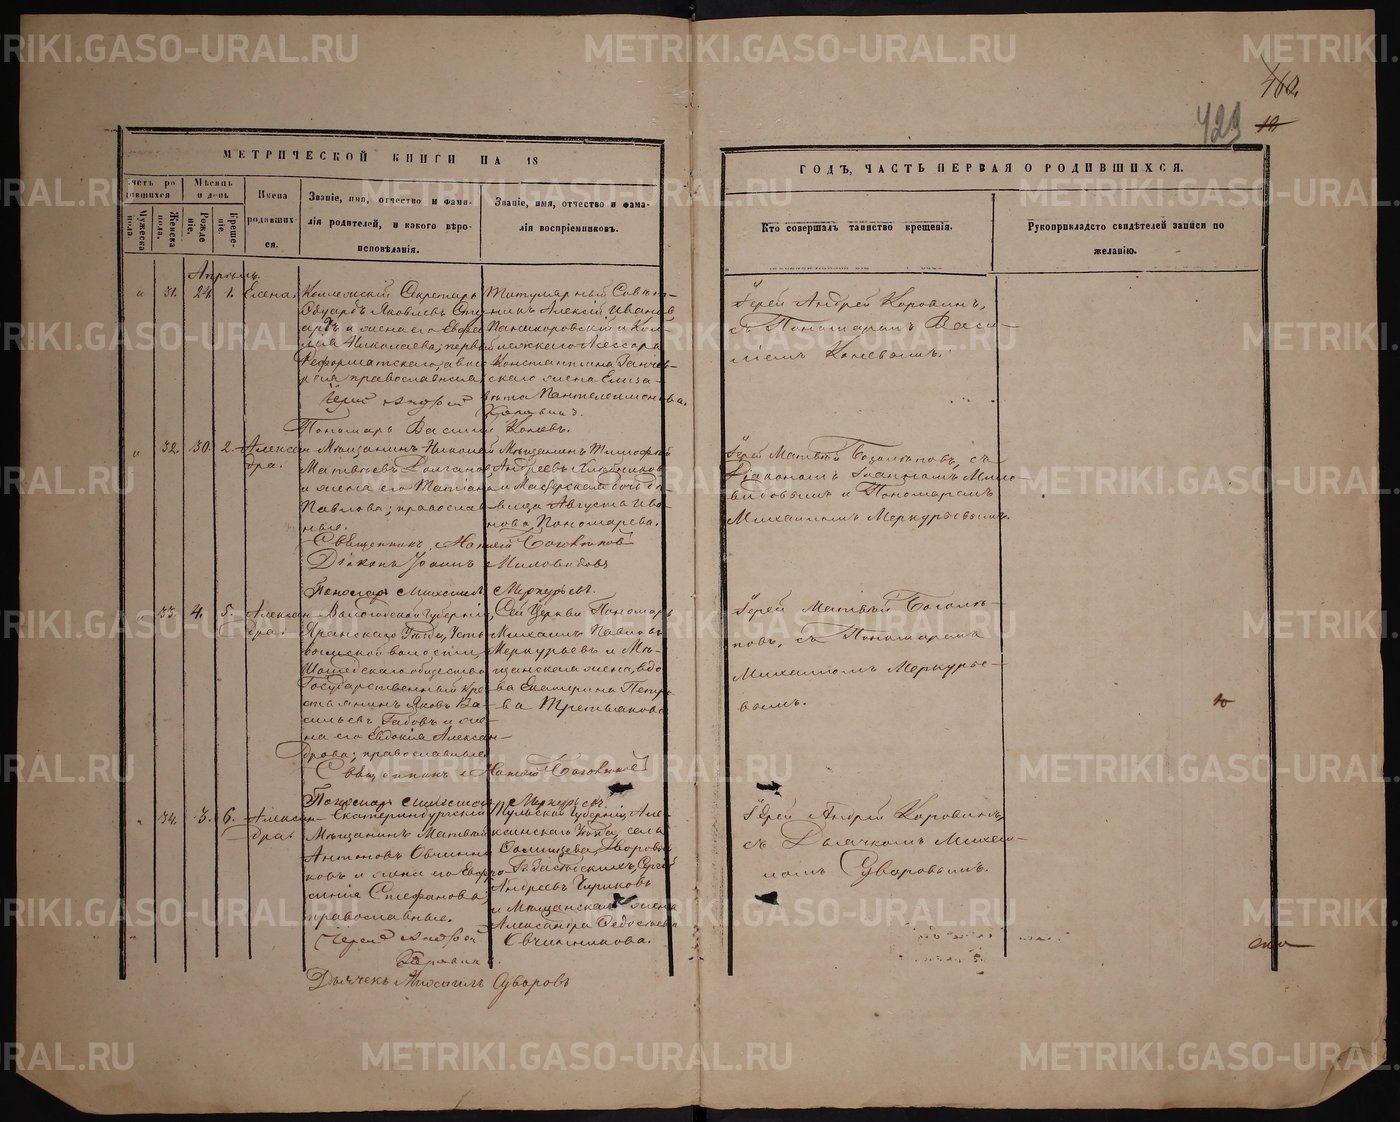 462.
423
10
МЕТРИЧЕСКОЙ КНИГИ НА 18
ГОДЪ, ЧАСТЬ ПЕРВАЯ О РОДИВШИХСЯ.
Счетъ родившихся
Мужеска пола.
Женска пола.
Мѣсяцъ и день
Рожденіе.
Крещеніе.
Имена родившихся.
Званіе, имя, отчество и фамилія родителей, и какого вѣроисповѣданія.
Званіе, имя, отчество и фамилія воспріемниковъ.
Кто совершалъ таинство крещенія.
Рукоприкладсто свидѣтелей записи по желанію.
Апрѣль.
31. 24. 1. Елена.
Коллежскій Секретарь
Эдуардъ Яковлевъ
и жена его
Николаева; первый
Реформатскаго, а
православная
Титулярный Совѣт-
никъ Алексѣй Ивановъ
и Кол-
лежскаго Ассесора
Константина
скаго жена Елиза-
вета Пантелеимонова
Іерей Андрей Коровинъ,
съ Пономаремъ Васи-
ліемъ Коневымъ.
Іерей Андрей
Коровинъ.
Пономарь Василій Коневъ.
32. 30. 2. Алексан-
дра.
Мѣщанинъ Николай
Матвѣевъ Долгановъ
и жена его Татіана
Павлова; православ-
ные.
Мѣщанинъ Тимофей
Андреевъ
и Мастерская дочь дѣ-
вица Августа Ива-
нова Пономарева.
Іерей Матвѣй Боголѣповъ, съ
Діакономъ Іоанномъ Мило-
видовымъ и Пономаремъ
Михаиломъ Меркурьевымъ.
Священникъ Матвѣй Боголѣповъ
Діаконъ Іоаннъ Миловидовъ
Пономарь Михаилъ Меркурьевъ
33. 4. 5. Алексан-
дра.
Вологодской Губерніи,
Яранскаго Уѣзда, Усть-
вымской волости,
общества
Государственный кре-
стьянинъ Яковъ Ва-
сильевъ Габовъ и же-
на его Евдокія Алексан-
дрова; православные
Сей Церкви Пономарь
Михаилъ Павловъ
Меркурьевъ и Мѣ-
щанская жена, вдо-
ва Екатерина Петро-
ва Третьякова
Іерей Матвѣй Боголѣ-
повъ, съ Пономаремъ
Михаиломъ Меркурье-
вымъ.
Священникъ Матвѣй Боголѣповъ
Пономарь Михаилъ Меркурьевъ.
34. 3. 6. Алексан-
дра.
Екатеринбургскій
Мѣщанинъ Матвѣй
Антоновъ Овчинни-
ковъ и жена его Евфро-
синія Стефанова,
православные.
Тульской Губерніи, Але-
ксинскаго Уѣзда, села
Солнцева, Дворовый
Г. Сергѣй
Андреевъ Чириковъ
и Мѣщанская жена
Александра Федостѣева
Овчинникова.
Іерей Андрей Коровинъ,
съ Дьячкомъ Михаи-
ломъ Суворовымъ.
Іерей Андрей
Коровинъ.
Дьячекъ Михаилъ Суворовъ
METRIKI.GASO-URAL.RU